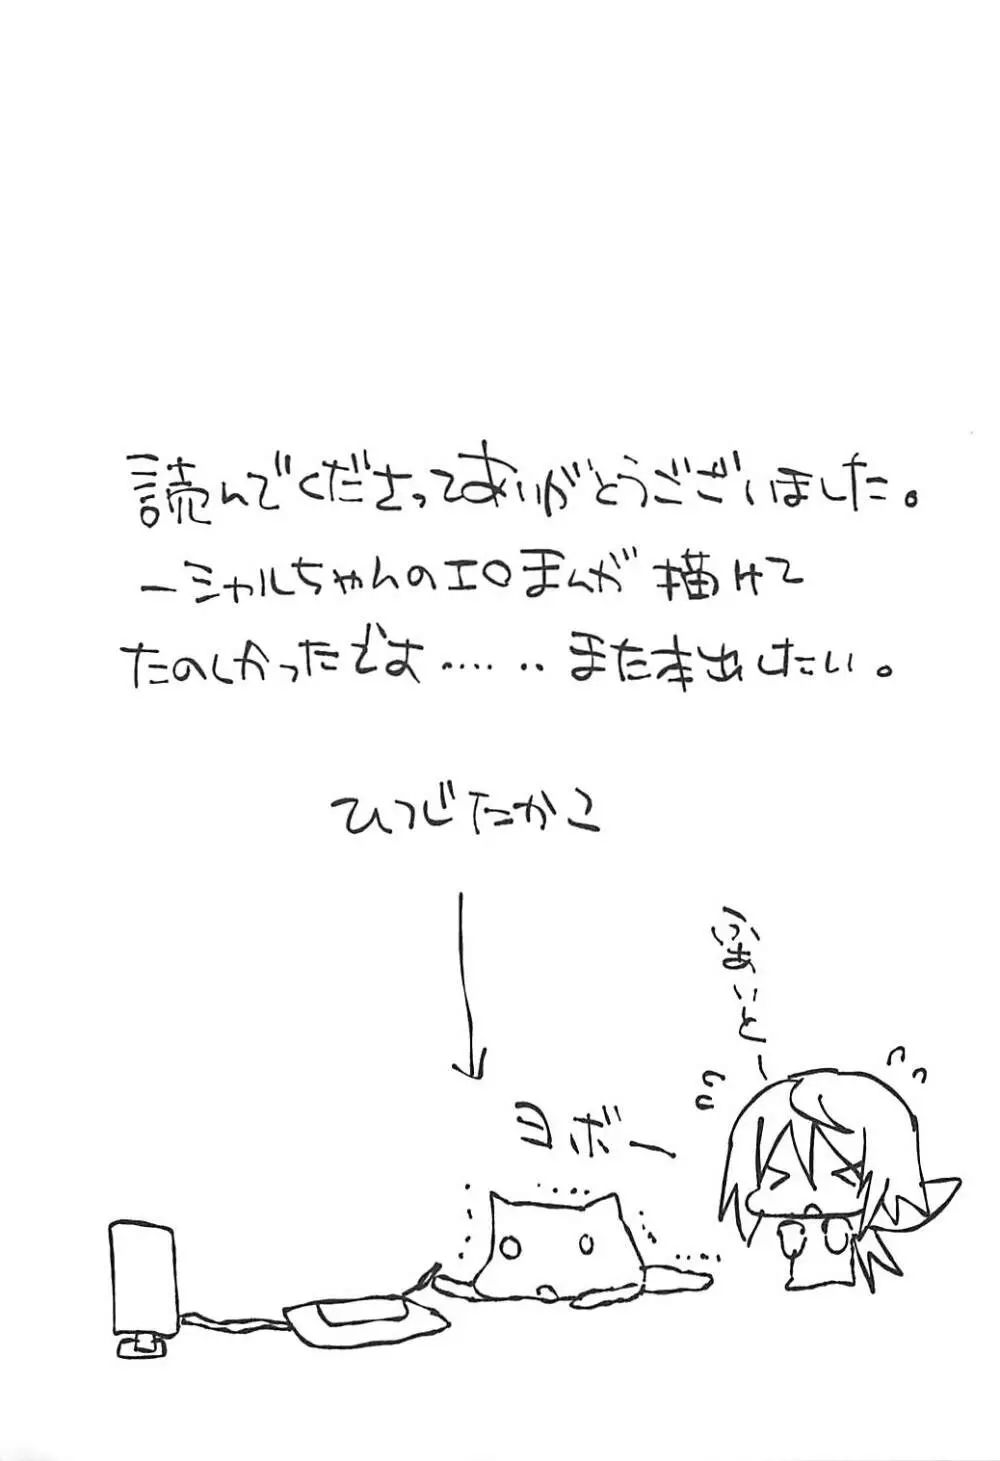 読んでくださってありがとうございました。
ーシャルちゃんのエロまんが描けて
たのしかったです…‥また本出したい。
ひつじたかこ
ふぁいとー
ヨボー